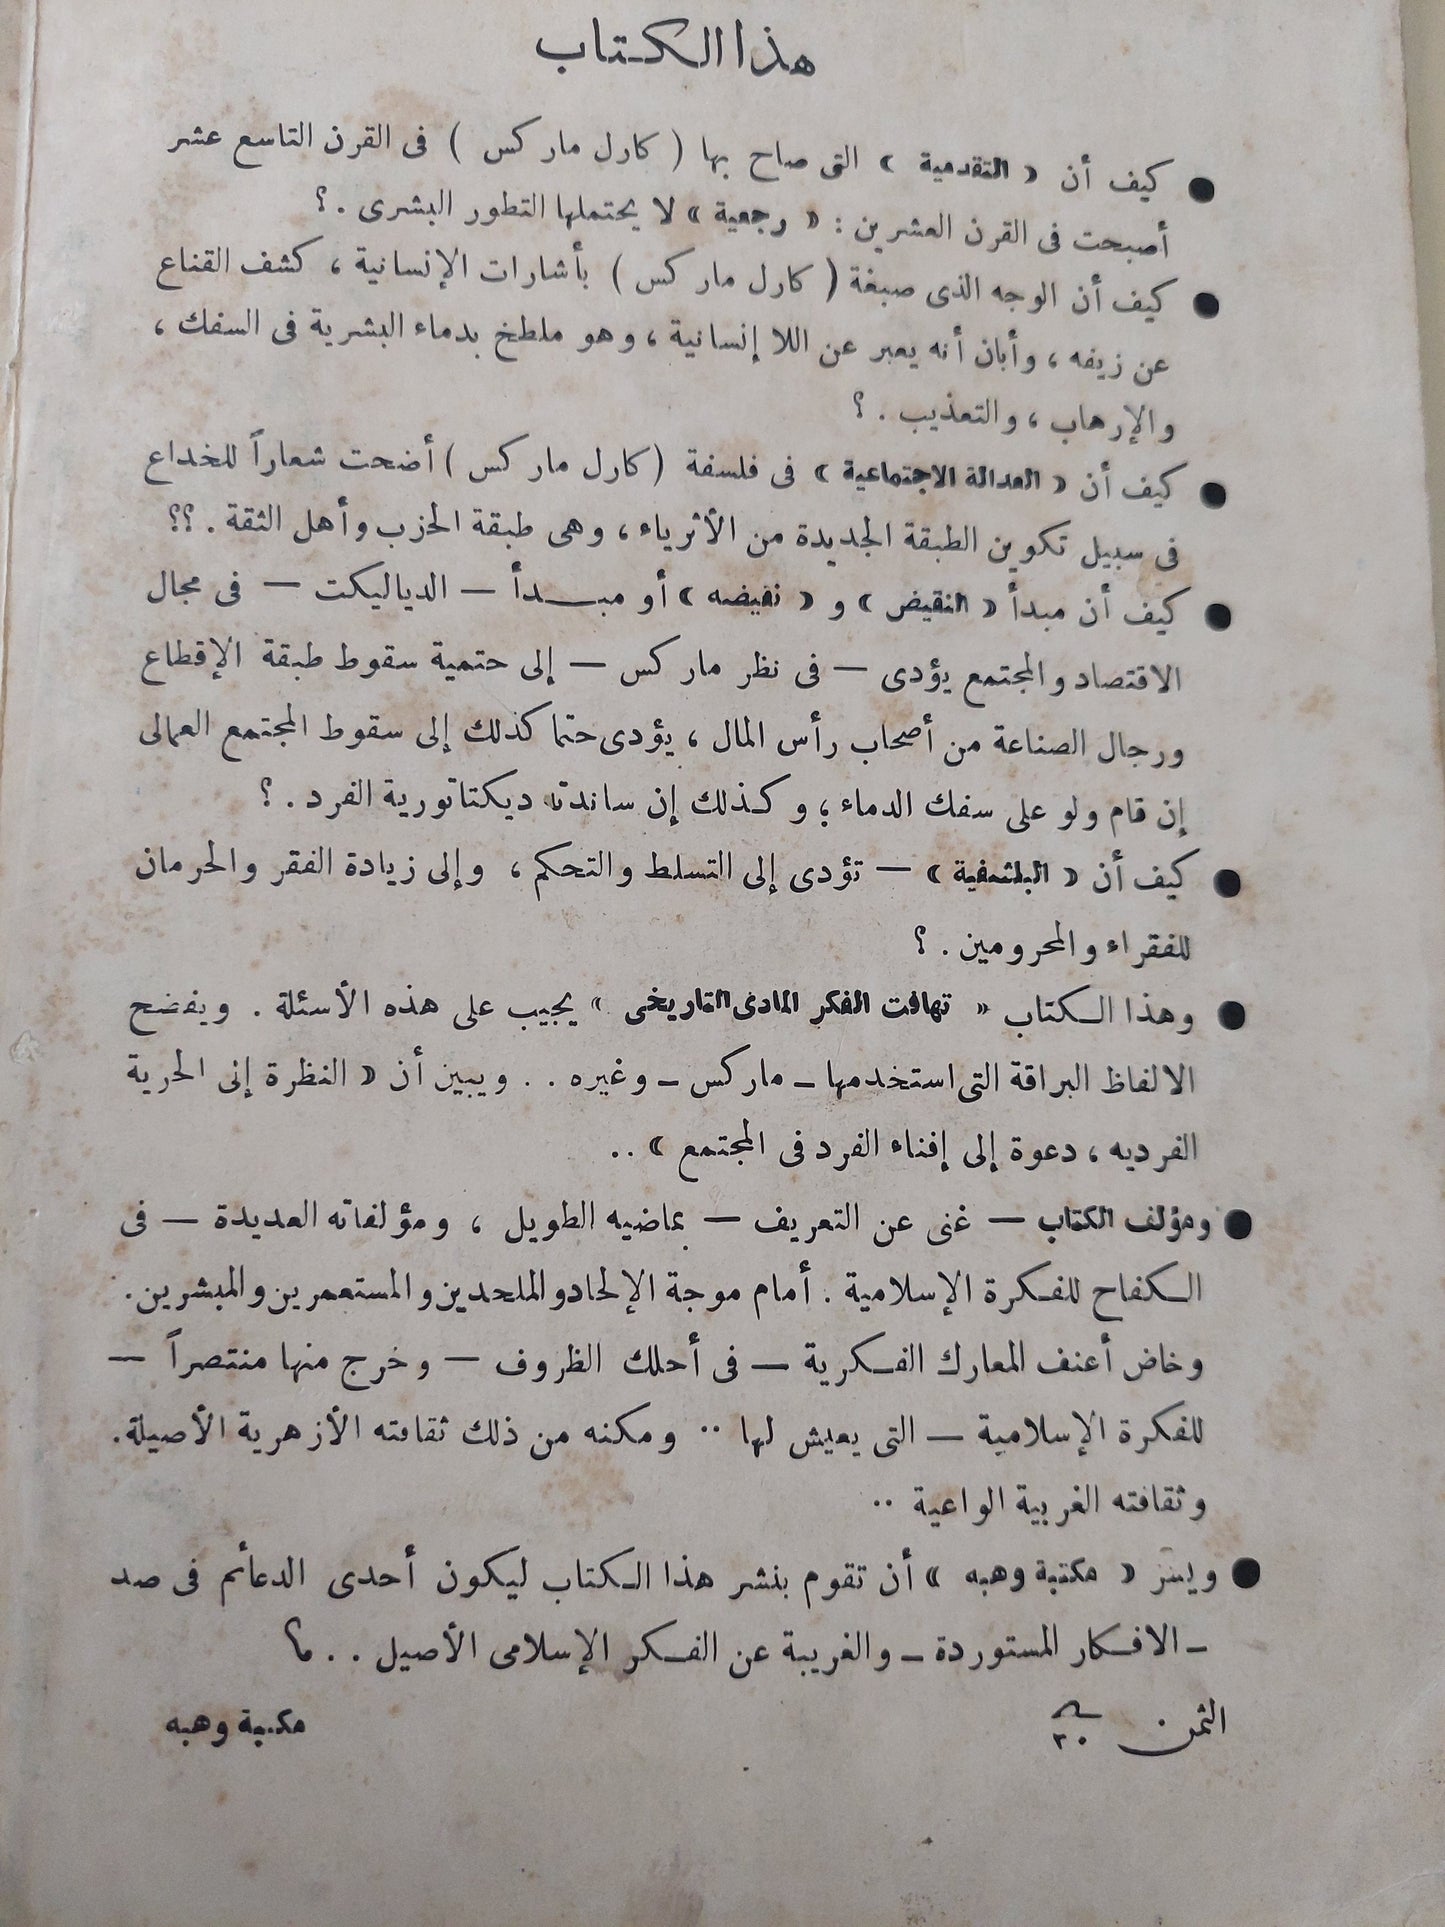 هذا الكتاب
● كيف أن « التقدمية » التى صاح بها ( كارل ماركس ) فى القرن التاسع عشر
أصبحت فى القرن العشرين : « رجعية » لا يحتملها التطور البشرى . ؟
● كيف أن الوجه الذى صبغة ( كارل ماركس ) بأشارات الإنسانية ، كشف القناع
عن زيفه ، وأبان أنه يعبر عن اللا إنسانية ، وهو ملطخ بدماء البشرية فى السفك ،
والإرهاب ، والتعذيب . ؟
● كيف أن « العدالة الاجتماعية » فى فلسفة ( كارل ماركس ) أضحت شعاراً للخداع
فى سبيل تكوين الطبقة الجديدة من الأثرياء ، وهى طبقة الحزب وأهل الثقة . ؟؟
● كيف أن مبدأ « النقيض » و « نقيضه » أو مبدأ — الدياليكت — فى مجال
الاقتصاد والمجتمع يؤدى — فى نظر ماركس — إلى حتمية سقوط طبقة الإقطاع
ورجال الصناعة من أصحاب رأس المال ، يؤدى حتما كذلك إلى سقوط المجتمع العمالى
إن قام ولو على سفك الدماء ؛ وكذلك إن ساندته ديكتاتورية الفرد . ؟
● كيف أن « البلشفية » — تؤدى إلى التسلط والتحكم ، وإلى زيادة الفقر والحرمان
للفقراء والمحرومين . ؟
● وهذا الكتاب « تهافت الفكر المادى التاريخى » يجيب على هذه الأسئلة . ويفضح
الالفاظ البراقة التى استخدمها – ماركس – وغيره . . ويبين أن « النظرة إلى الحرية
الفرديه ، دعوة إلى إفناء الفرد فى المجتمع » ..
● ومؤلف الكتاب — غنى عن التعريف — بماضيه الطويل ، ومؤلفاته العديدة — فى
الكفاح للفكرة الإسلامية . أمام موجة الإلحاد والملحدين والمستعمرين والمبشرين .
وخاض أعنف المعارك الفكرية — فى أحلك الظروف — وخرج منها منتصراً —
للفكرة الإسلامية — التى يعيش لها .. ومكنه من ذلك ثقافته الأزهرية الأصيلة .
وثقافته الغربية الواعية ..
● ويسر « مكتبة وهبه » أن تقوم بنشر هذا الكتاب ليكون أحدى الدعائم فى صد
– الافكار المستوردة – والغريبة عن الفكر الإسلامى الأصيل . .
الثمن ٣٠
مكتبة وهبه